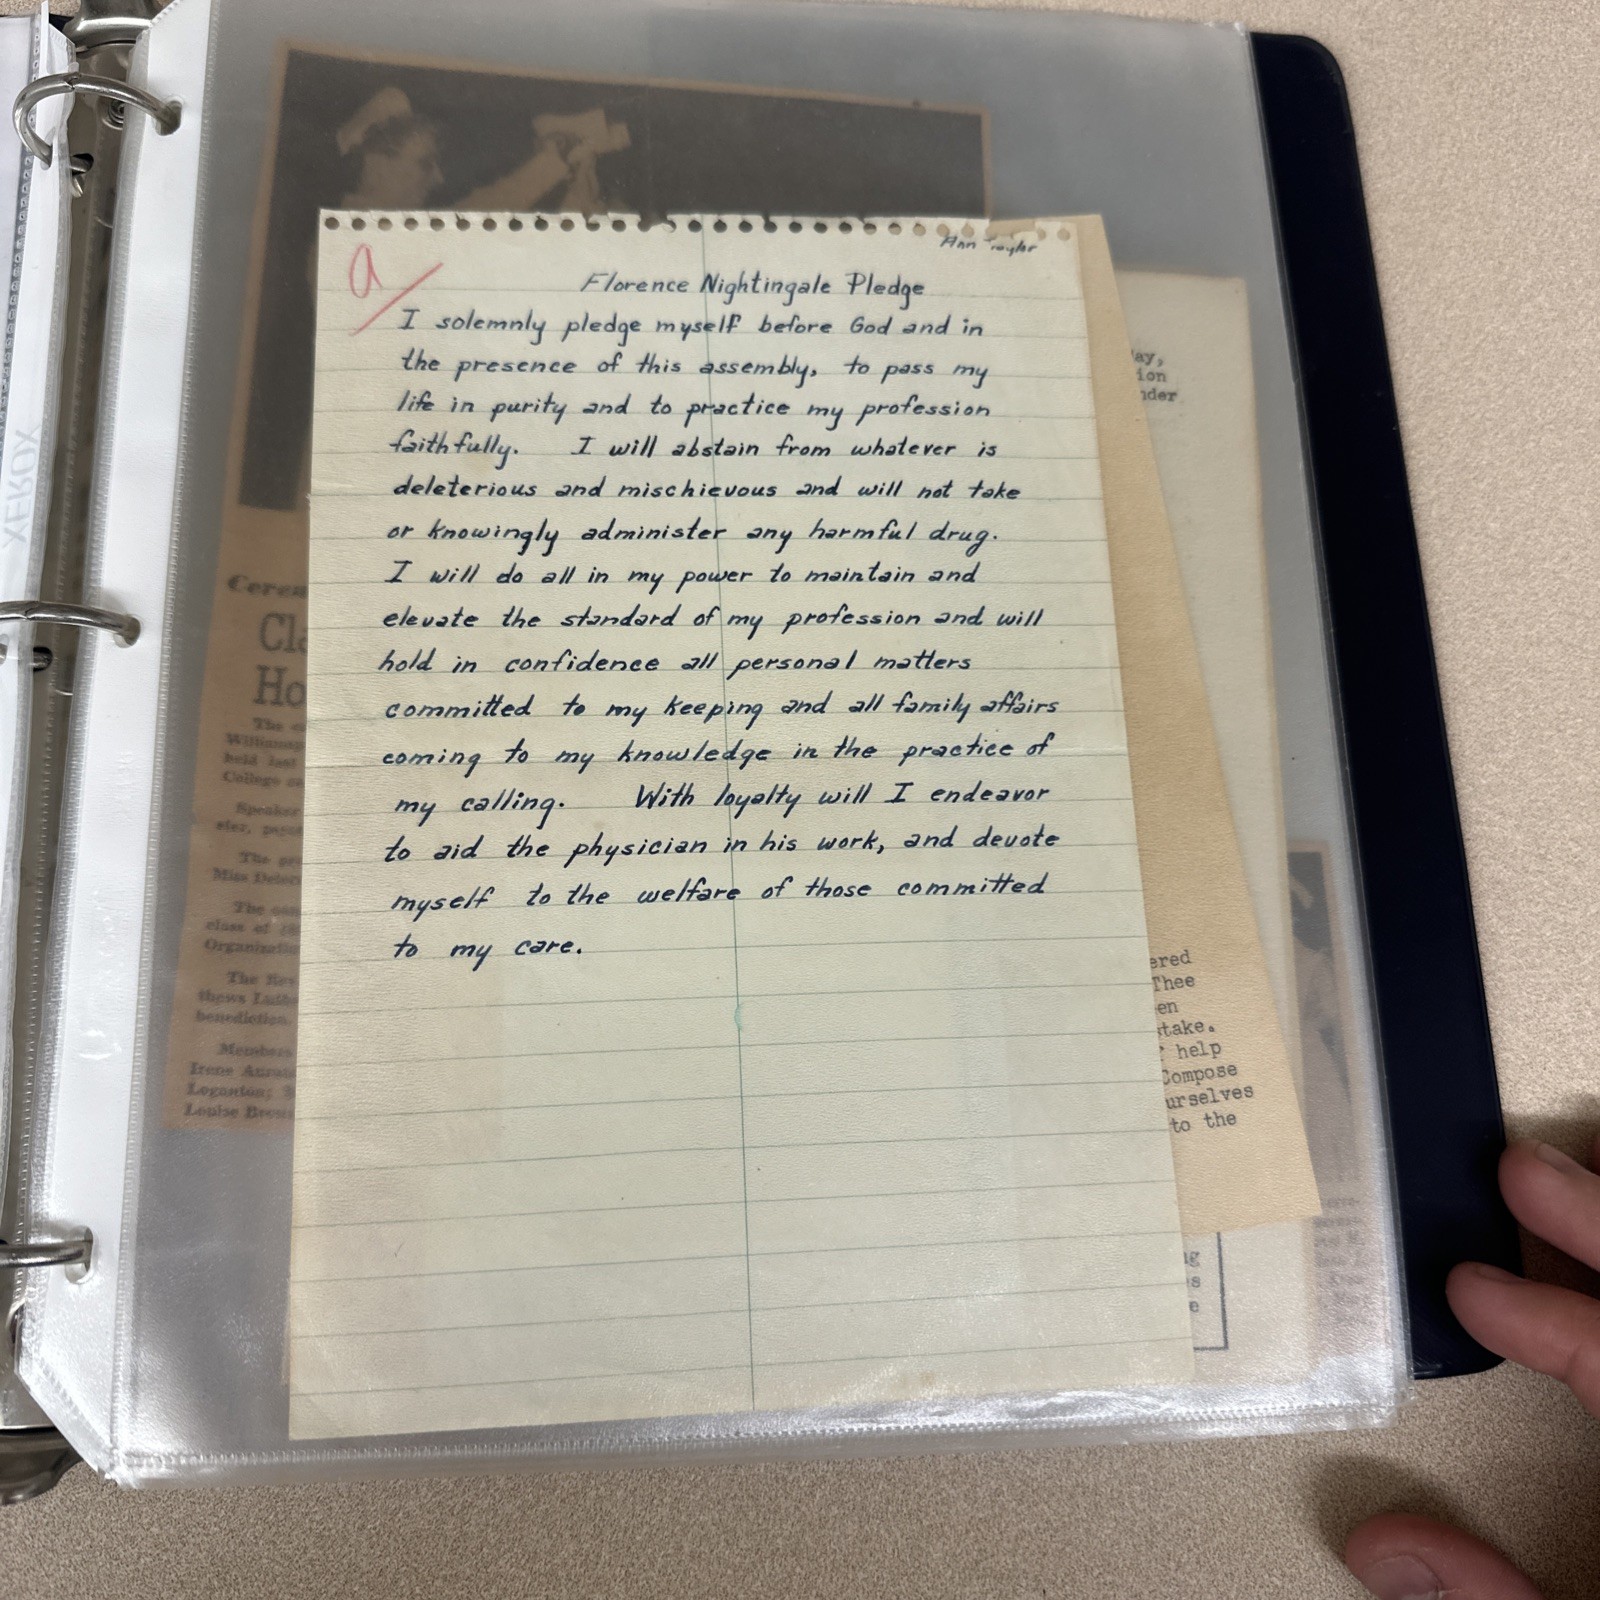 XEROX
Ann Taylor
a
Florence Nightingale Pledge
I solemnly pledge myself before God and in
the presence of this assembly, to pass my
life in purity and to practice my profession
faithfully. I will abstain from whatever is
deleterious and mischievous and will not take
or knowingly administer any harmful drug.
I will do all in my power to maintain and
elevate the standard of my profession and will
hold in confidence all personal matters
committed to my keeping and all family affairs
coming to my knowledge in the practice of
my calling. With loyalty will I endeavor
to aid the physician in his work, and devote
myself to the welfare of those committed
to my care.
ay,
ion
nder
ered
Thee
en
stake.
help
Compose
urselves
to the
Cla
Ho
The
held last
College
Speaker
The
Miss
The
class of
Organizatio
The Rev
benediction.
Members
Irene
Loganton;
Louise